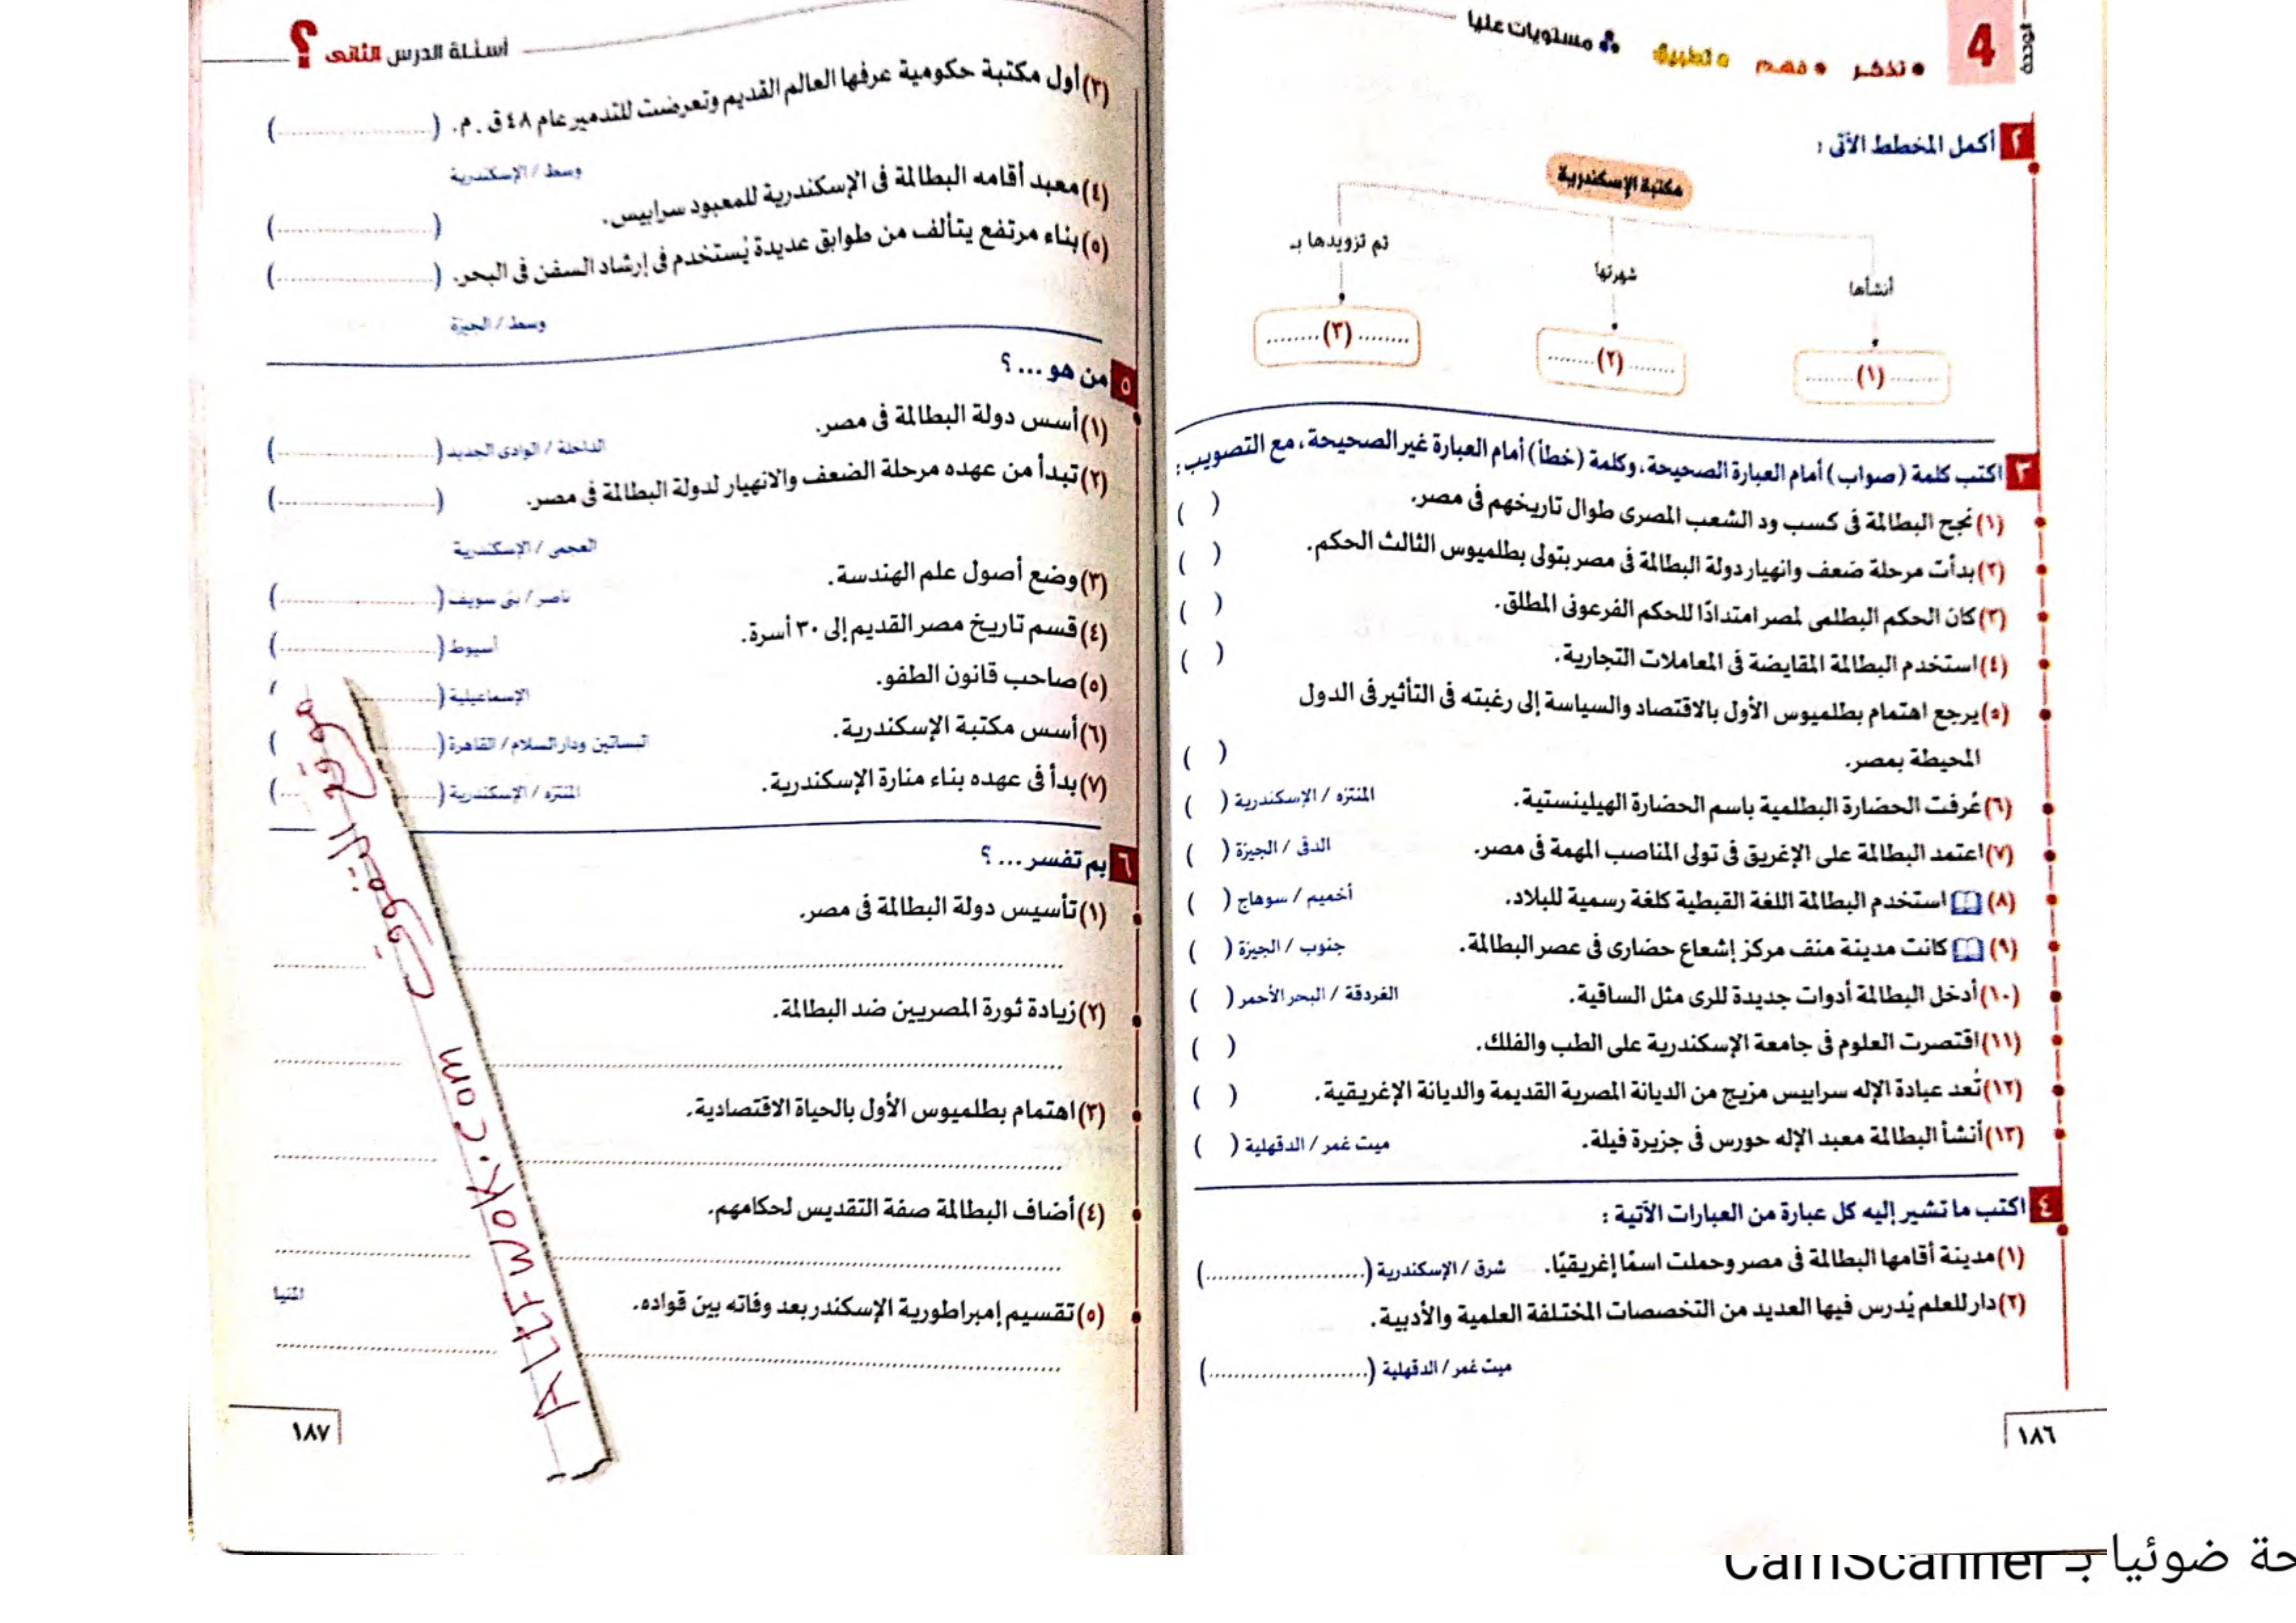 4
الوحدة
• تذكر • فهم • تطبيق مستويات عليا
٢ أكمل المخطط الآتى :
مكتبة الإسكندرية
أنشأها
شهرتها
تم تزويدها بـ
........(١)........
........(٢)........
........(٣)........
٣ اكتب كلمة (صواب) أمام العبارة الصحيحة، وكلمة (خطأ) أمام العبارة غير الصحيحة، مع التصويب :
(١) نجح البطالمة فى كسب ود الشعب المصرى طوال تاريخهم فى مصر. ( )
(٢) بدأت مرحلة ضعف وانهيار دولة البطالمة فى مصر بتولى بطلميوس الثالث الحكم. ( )
(٣) كان الحكم البطلمى لمصر امتدادًا للحكم الفرعونى المطلق. ( )
(٤) استخدم البطالمة المقايضة فى المعاملات التجارية. ( )
(٥) يرجع اهتمام بطلميوس الأول بالاقتصاد والسياسة إلى رغبته فى التأثير فى الدول
المحيطة بمصر. ( )
(٦) عُرفت الحضارة البطلمية باسم الحضارة الهيلينستية. المنتزه / الإسكندرية ( )
(٧) اعتمد البطالمة على الإغريق فى تولى المناصب المهمة فى مصر. الدقى / الجيزة ( )
(٨) استخدم البطالمة اللغة القبطية كلغة رسمية للبلاد. أخميم / سوهاج ( )
(٩) كانت مدينة منف مركز إشعاع حضارى فى عصر البطالمة. جنوب / الجيزة ( )
(١٠) أدخل البطالمة أدوات جديدة للرى مثل الساقية. الغردقة / البحر الأحمر ( )
(١١) اقتصرت العلوم فى جامعة الإسكندرية على الطب والفلك. ( )
(١٢) تُعد عبادة الإله سرابيس مزيج من الديانة المصرية القديمة والديانة الإغريقية. ( )
(١٣) أنشأ البطالمة معبد الإله حورس فى جزيرة فيلة. ميت غمر / الدقهلية ( )
٤ اكتب ما تشير إليه كل عبارة من العبارات الآتية :
(١) مدينة أقامها البطالمة فى مصر وحملت اسمًا إغريقيًا. شرق / الإسكندرية (........................)
(٢) دار للعلم يُدرس فيها العديد من التخصصات المختلفة العلمية والأدبية.
ميت غمر / الدقهلية (........................)
١٨٦
أسئلة الدرس الثانى ؟
(٣) أول مكتبة حكومية عرفها العالم القديم وتعرضت للتدمير عام ٤٨ ق . م. (........................)
وسط / الإسكندرية
(٤) معبد أقامه البطالمة فى الإسكندرية للمعبود سرابيس. (........................)
(٥) بناء مرتفع يتألف من طوابق عديدة يُستخدم فى إرشاد السفن فى البحر. (........................)
وسط / الجيزة
٥ من هو ... ؟
(١) أسس دولة البطالمة فى مصر. الداخلة / الوادى الجديد (........................)
(٢) تبدأ من عهده مرحلة الضعف والانهيار لدولة البطالمة فى مصر. (........................)
العجمى / الإسكندرية
(٣) وضع أصول علم الهندسة. ناصر / بنى سويف (........................)
(٤) قسم تاريخ مصر القديم إلى ٣٠ أسرة. أسيوط (........................)
(٥) صاحب قانون الطفو. الإسماعيلية (........................)
(٦) أسس مكتبة الإسكندرية. البساتين ودار السلام / القاهرة (........................)
(٧) بدأ فى عهده بناء منارة الإسكندرية. المنتزه / الإسكندرية (........................)
٦ بم تفسر ... ؟
(١) تأسيس دولة البطالمة فى مصر.
(٢) زيادة ثورة المصريين ضد البطالمة.
(٣) اهتمام بطلميوس الأول بالحياة الاقتصادية.
(٤) أضاف البطالمة صفة التقديس لحكامهم.
(٥) تقسيم إمبراطورية الإسكندر بعد وفاته بين قواده. المنيا
١٨٧
موقع التفوق
ALTFWOK.COM
حة ضوئيا بـ CamScanner